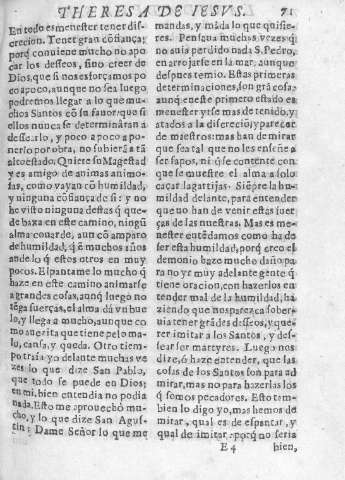 THERESA DE IESVS. 71
En todo es menester tener discrecion.
Tener gran cõfiança;
porq̃ conuiene mucho no apocar
los desseos, sino creer de
Dios, que si nos esforçamos poco
a poco, aunque no sea luego
podremos llegar a lo que muchos
Santos cõ su fauor; que si
ellos nunca se determinaran a
dessearlo, y poco a poco a ponerlo
por obra, no subieran a tã
alto estado. Quiere su Magestad
y es amigo de animas animosas,
como vayan cõ humildad,
y ninguna cõfiança de si: y no
he visto ninguna destas q̃ quede
baxa en este camino, ningũ
alma couarde, aun cõ amparo
de humildad, q̃ en muchos años
ande lo q̃ estos otros en muy
pocos. Espantame lo mucho q̃
haze en este camino animarse
a grandes cosas, aunq̃ luego no
tẽga fuerças, el alma dà vn buelo,
y llega a mucho, aunque como
auezita que tiene pelo malo,
cansa, y queda. Otro tiempo
traía yo delante muchas vezes
lo que dize San Pablo,
que todo se puede en Dios;
en mi, bien entendia no podia
nada. Esto me aprouechò mucho,
y lo que dize San Agustin:
Dame Señor lo que me
mandas, y mãda lo que quisieres.
Pensaua muchas vezes q̃
no auia perdido nada S. Pedro,
en arrojarse en la mar, aunque
despues temio. Estas primeras
determinaciones, son grã cosa:
aunq̃ en este primero estado es
menester yrse mas detenido, y
atados a la discrecio, y parecer
de maestros: mas han de mirar
que sea tal que no les enseñe a
ser sapos, ni q̃ se contente con
que se muestre el alma a solo
caçar lagartijas. Siẽpre la humildad
delante, para entender
que no han de venir estas fuerças
de las nuestras. Mas es menester
entẽdamos como ha de
ser esta humildad, porq̃ creo el
demonio haze mucho daño para
no yr muy adelante gente q̃
tiene oracion, con hazerlos entender
mal de la humildad, haziendo
que nos parezca soberuia
tener grãdes desseos, y querer
imitar a los Santos, y dessear
ser martyres. Luego nos
dize, ò haze entender, que las
cosas de los Santos son para admirar,
mas no para hazerlas los
q̃ somos pecadores. Esto tambien
lo digo yo, mas hemos de
mirar, qual es de espantar, y
qual de imitar, aporq̃ no seria
E 4 bien,